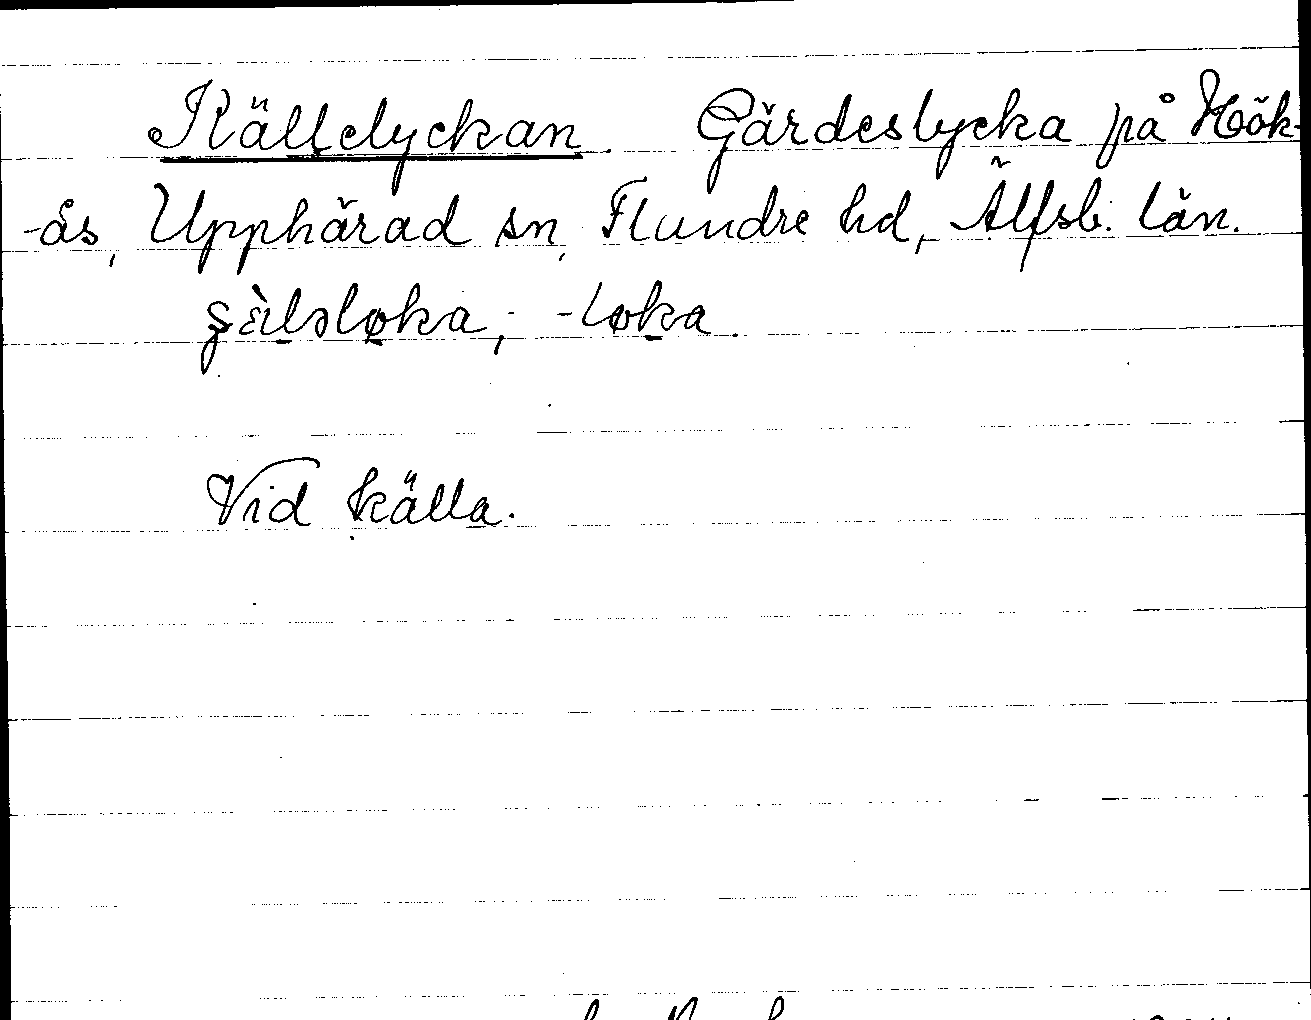 Källelyckan. Gärdeslycka på Hök-
-ås, Upphärad sn, Flundre hd, Älfsb. län.
-loka.
Vid källa.